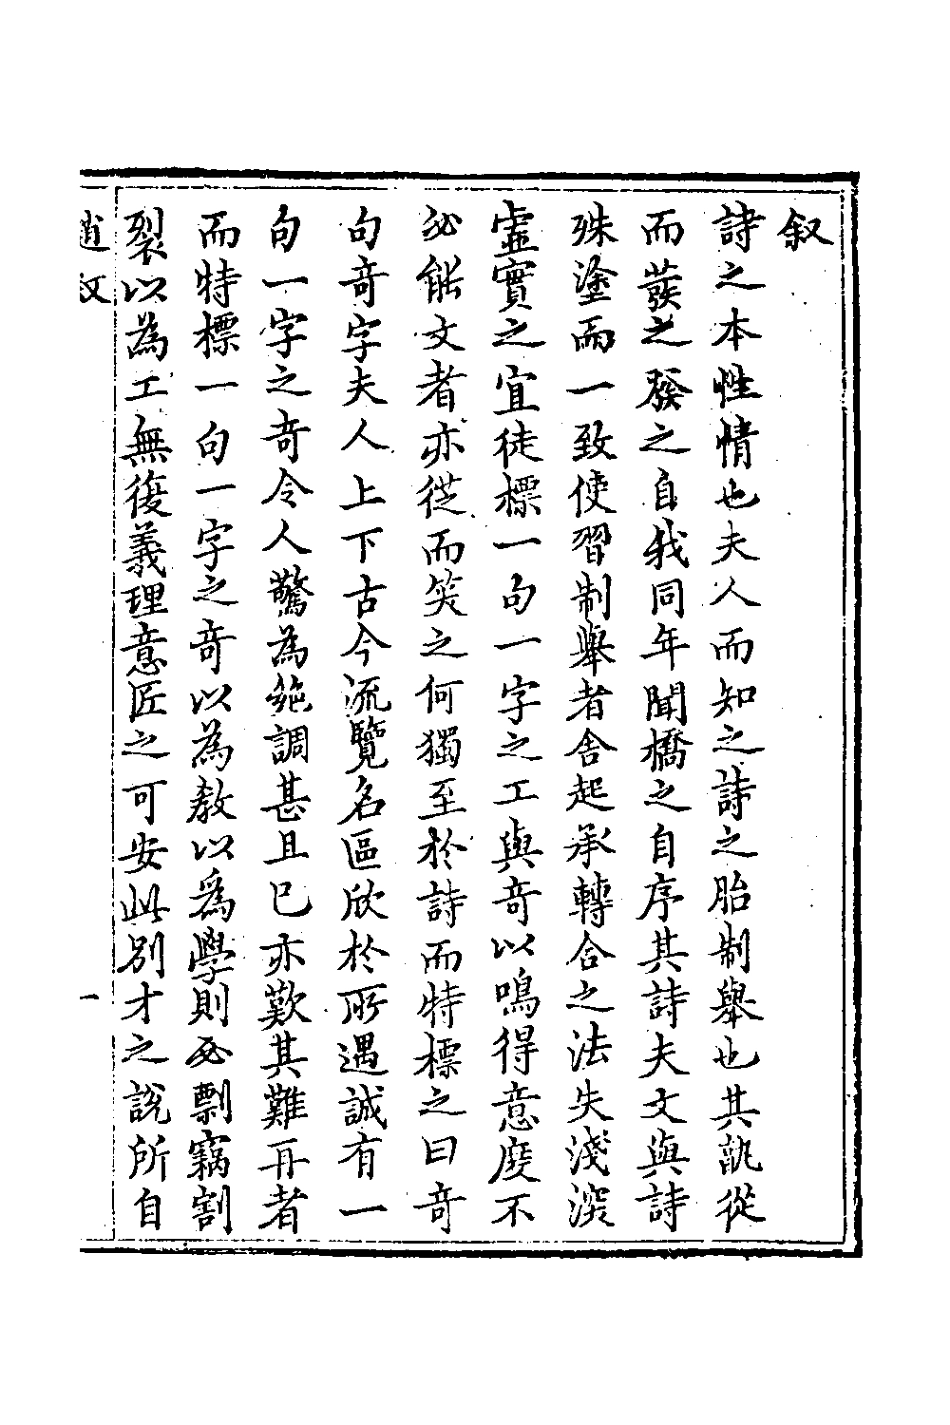 叙
詩之本性情也夫人而知之詩之胎制舉也其孰從
而蕟之發之自我同年聞橋之自序其詩夫文與詩
殊塗而一致使習制舉者舍起承轉合之法失淺深
虛實之宜徒標一句一字之工與竒以鳴得意度不
必能文者亦從而笑之何獨至於詩而特標之曰竒
句竒字夫人上下古今流覽名區欣於所遇誠有一
句一字之竒令人驚為絶調甚且已亦歎其難再者
而特標一句一字之竒以為敎以爲學則必剽竊割
裂以為工無復義理意匠之可安此別才之說所自
一